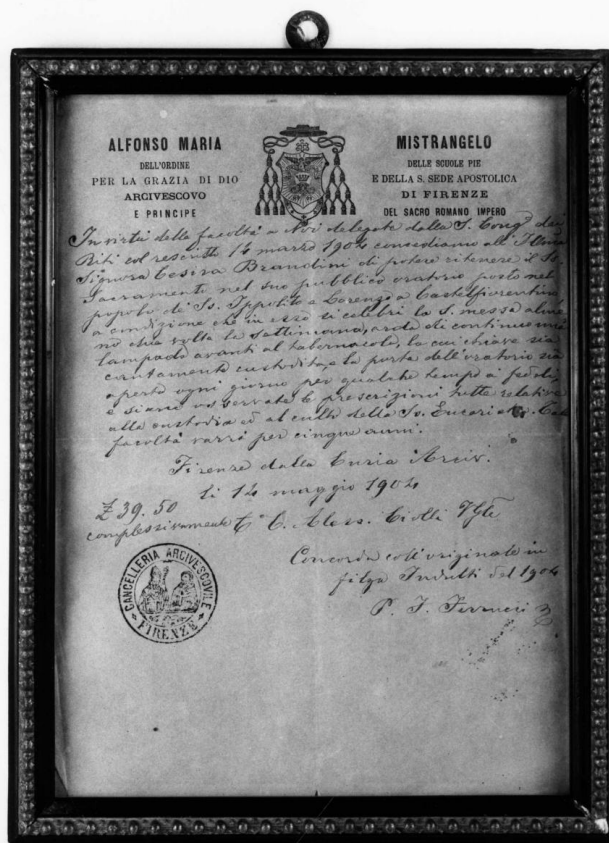 ALFONSO MARIA
DELL'ORDINE
PER LA GRAZIA DI DIO
ARCIVESCOVO
E PRINCIPE
MISTRANGELO
DELLE SCUOLE PIE
E DELLA S. SEDE APOSTOLICA
DI FIRENZE
DEL SACRO ROMANO IMPERO
In virtù delle facoltà a Noi delegate dalla S. Congne dei
Riti col rescritto 14 marzo 1904 concediamo all' Illma
Signora Cesira Brandini di potere ritenere il Ss.
Sacramento nel suo pubblico oratorio posto nel
popolo di Ss. Ippolito e Lorenzo a Castelfiorentino,
a condizione che in esso si celebri la S. messa alme
no una volta la settimana, arda di continuo una
lampada avanti al tabernacolo, la cui chiave sia
cautamente custodita, e la porta dell'oratorio sia
aperta ogni giorno per qualche tempo ai fedeli,
e siano osservate le prescrizioni tutte relative
alla custodia ed al culto della Ss. Eucaristia.
facoltà varrà per cinque anni.
Firenze dalla Curia Arciv.
li 14 maggio 1904
£ 39.50
complessivamente
C. Aless. Ciolli
CANCELLERIA ARCIVESCOVILE
FIRENZE
Concorda coll'originale in
filza Indulti del 1904